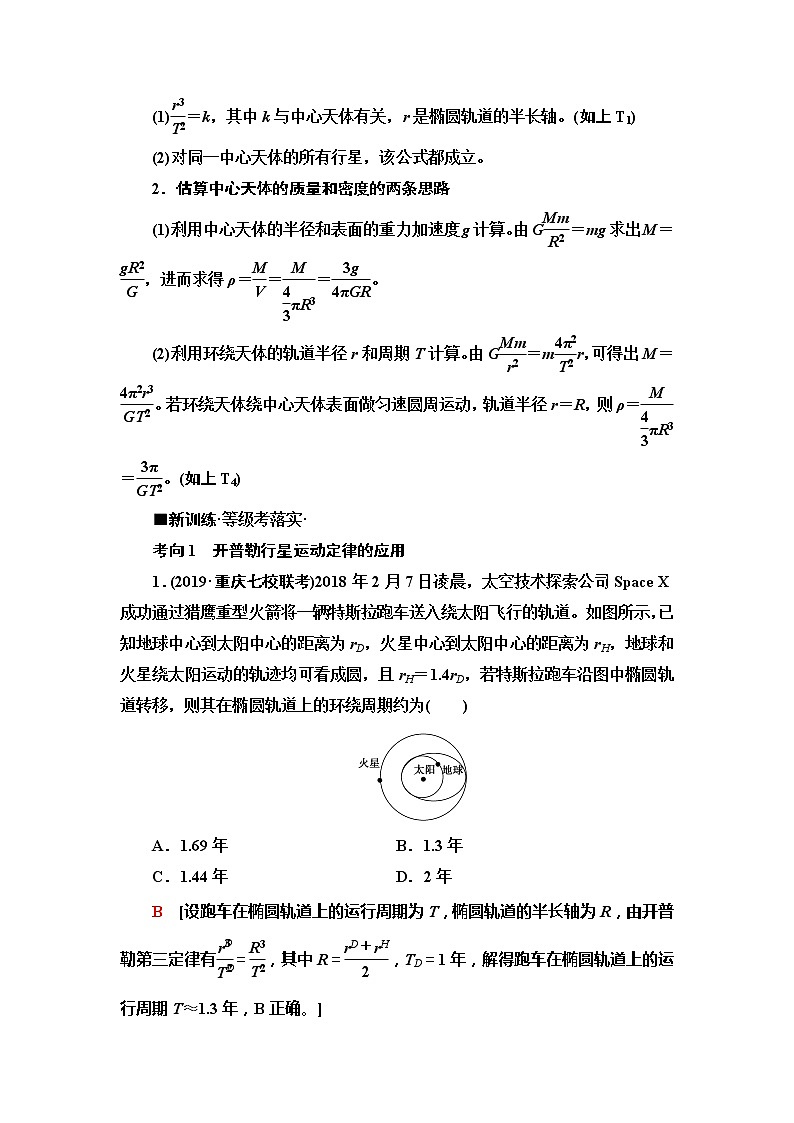 (1)r³/T²=k，其中 k 与中心天体有关，r 是椭圆轨道的半长轴。(如上 T₁)
(2)对同一中心天体的所有行星，该公式都成立。
2．估算中心天体的质量和密度的两条思路
(1)利用中心天体的半径和表面的重力加速度 g 计算。由 G Mm/R²=mg 求出 M=
gR²/G，进而求得 ρ=M/V=M/(4/3 πR³)=3g/4πGR。
(2)利用环绕天体的轨道半径 r 和周期 T 计算。由 G Mm/r²=m 4π²/T² r，可得出 M=
4π²r³/GT²。若环绕天体绕中心天体表面做匀速圆周运动，轨道半径 r=R，则 ρ=M/(4/3 πR³)
=3π/GT²。(如上 T₄)
■新训练·等级考落实·
考向 1 开普勒行星运动定律的应用
1．(2019·重庆七校联考)2018 年 2 月 7 日凌晨，太空技术探索公司 Space X
成功通过猎鹰重型火箭将一辆特斯拉跑车送入绕太阳飞行的轨道。如图所示，已
知地球中心到太阳中心的距离为 r_D，火星中心到太阳中心的距离为 r_H，地球和
火星绕太阳运动的轨迹均可看成圆，且 r_H=1.4r_D，若特斯拉跑车沿图中椭圆轨
道转移，则其在椭圆轨道上的环绕周期约为( )
火星 太阳 地球
A．1.69 年 B．1.3 年
C．1.44 年 D．2 年
B [设跑车在椭圆轨道上的运行周期为 T，椭圆轨道的半长轴为 R，由开普
勒第三定律有 r_D³/T_D²=R³/T²，其中 R=(r_D+r_H)/2，T_D=1 年，解得跑车在椭圆轨道上的运
行周期 T≈1.3 年，B 正确。]